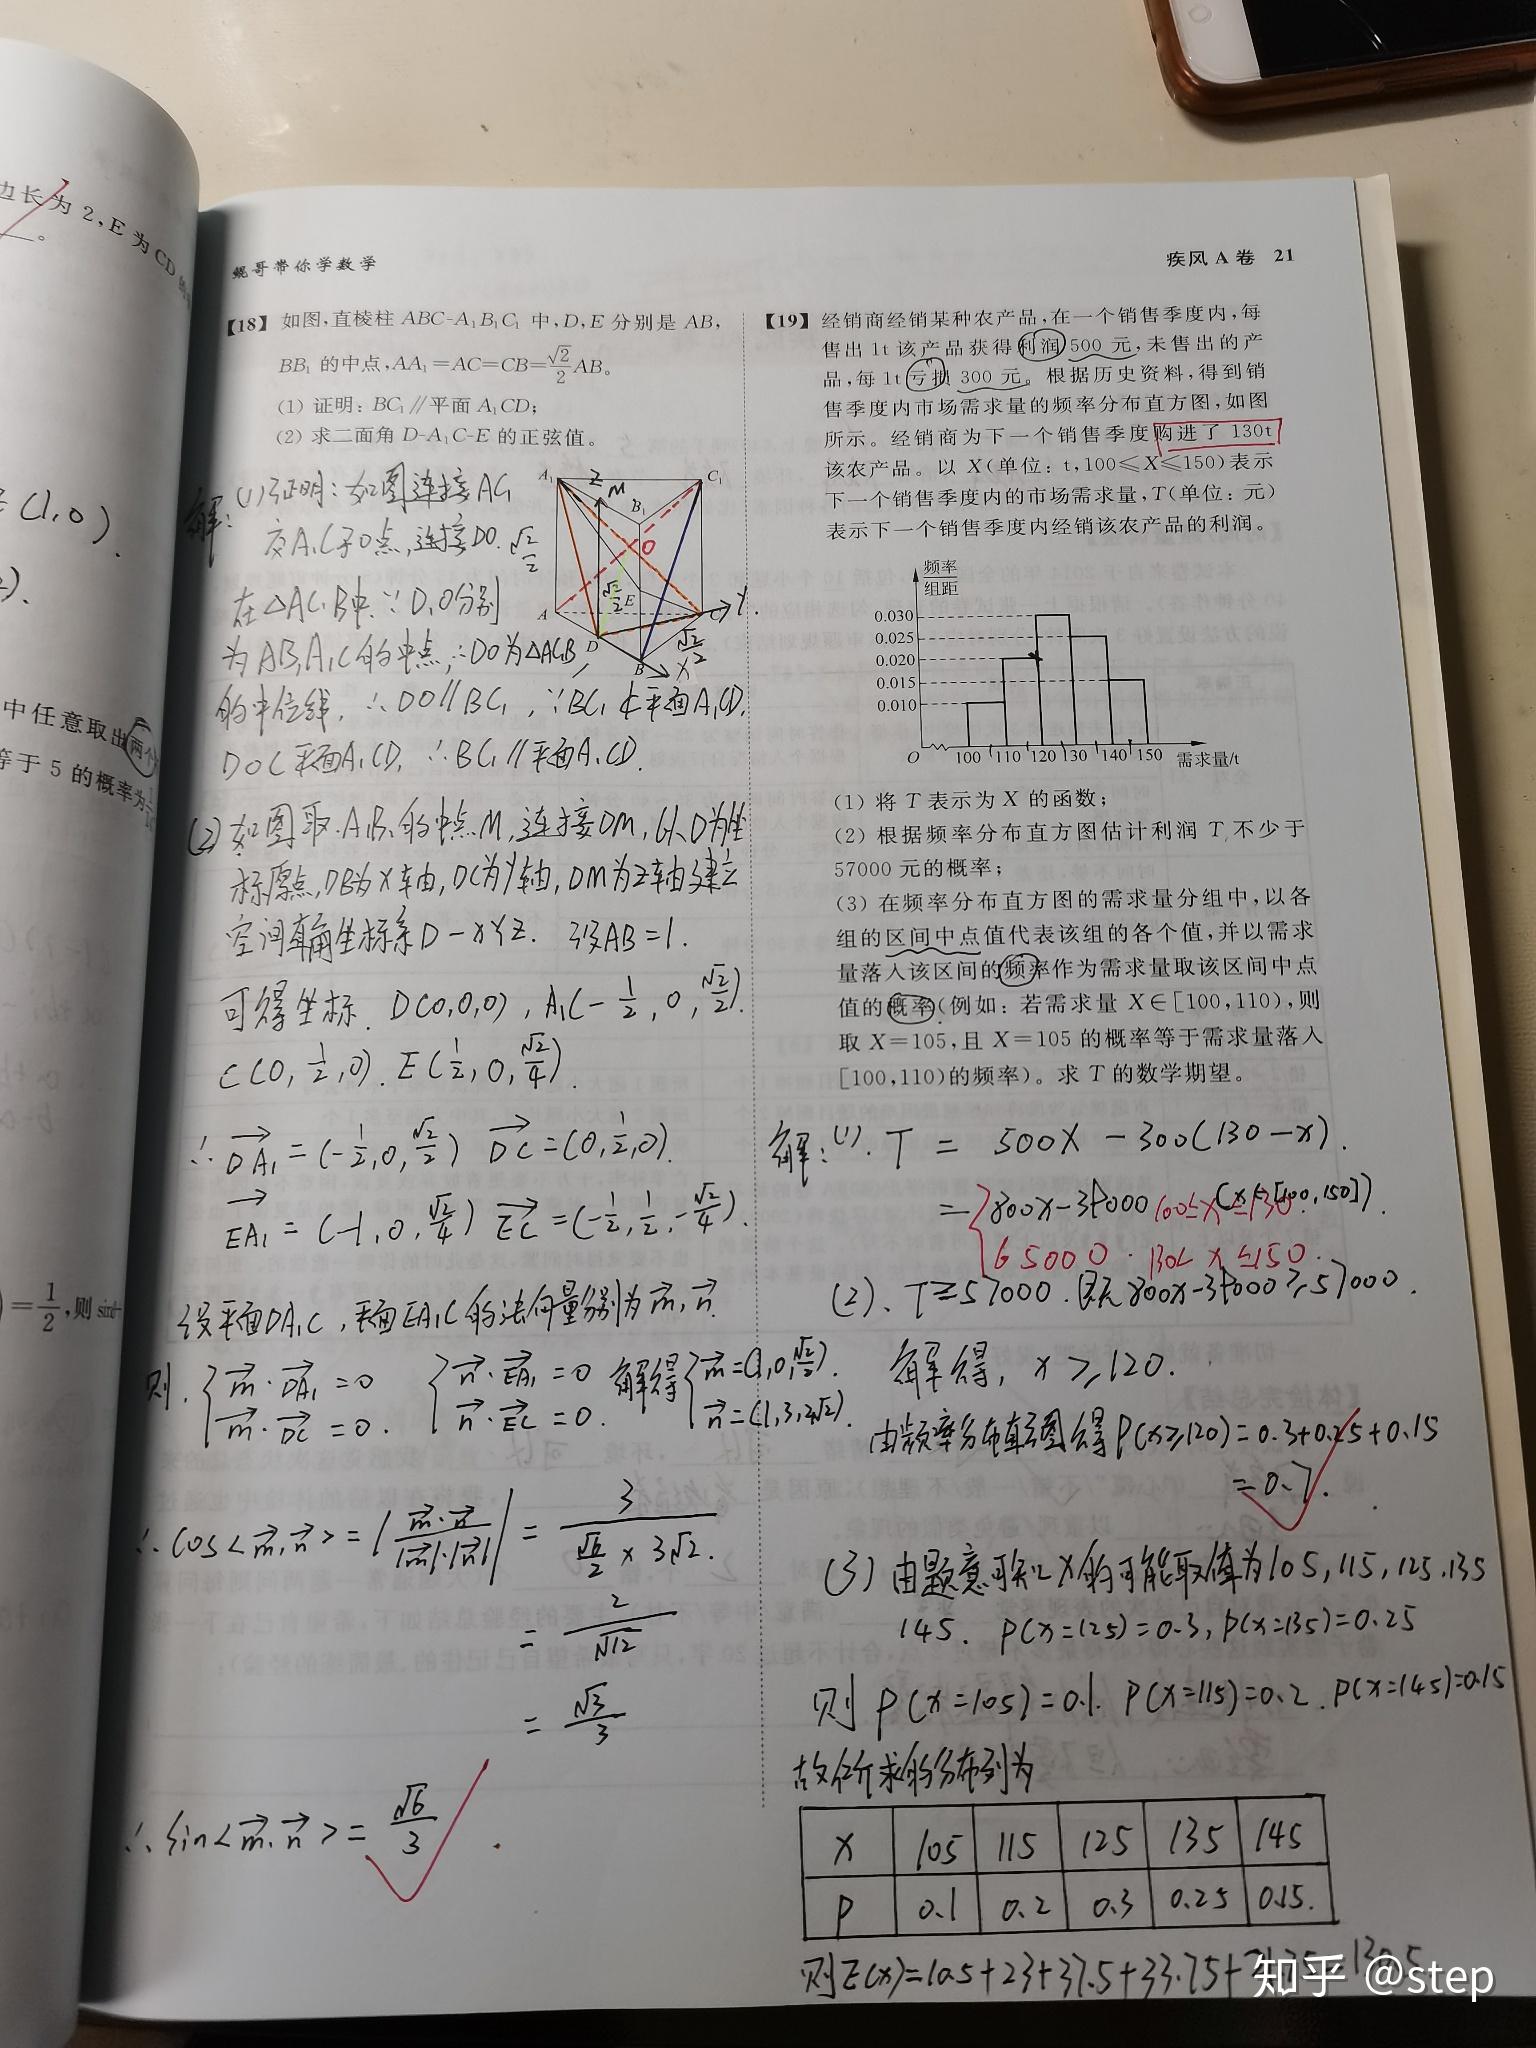 边长为 2,E 为 CD
E(1,0).
中任意取出两个
等于 5 的概率为
=1/2,则 sin
鲲哥带你学数学
疾风 A 卷 21
【18】如图,直棱柱 ABC-A₁B₁C₁ 中,D,E 分别是 AB,
BB₁ 的中点,AA₁=AC=CB=√2/2AB。
(1) 证明:BC₁∥平面 A₁CD;
(2) 求二面角 D-A₁C-E 的正弦值。
解:(1)证明:如图连接AC₁
交A₁C于O点,连接DO.
在△AC₁B中∵D,O分别
为AB,A₁C的中点,∴DO为△AC₁B
的中位线,∴DO∥BC₁,∵BC₁⊄平面A₁CD,
DO⊂平面A₁CD,∴BC₁∥平面A₁CD.
A₁ Z M C₁
B₁
O
√2/2
√2/2 E
A C Y
D √2/2
B X
(2)如图取A₁B₁的中点M,连接DM,以D为坐
标原点,DB为X轴,DC为Y轴,DM为Z轴建立
空间直角坐标系D-XYZ. 设AB=1.
可得坐标. D(0,0,0),A₁(-1/2,0,√2/2).
C(0,1/2,0).E(1/2,0,√2/4).
∴DA₁=(-1/2,0,√2/2) DC=(0,1/2,0).
EA₁=(-1,0,√2/4) EC=(-1/2,1/2,-√2/4).
设平面DA₁C,平面EA₁C的法向量分别为m,n.
则.{m·DA₁=0 {n·EA₁=0 解得{m=(1,0,√2/2).
m·DC=0. n·EC=0. n=(1,3,2√2).
∴cos<m,n>=|m·n/|m|·|n||=3/(√6/2×3√2.
=2/√12
=√3/3
∴sin<m,n>=√6/3
【19】经销商经销某种农产品,在一个销售季度内,每
售出 1t 该产品获得利润 500 元,未售出的产
品,每 1t 亏损 300 元。根据历史资料,得到销
售季度内市场需求量的频率分布直方图,如图
所示。经销商为下一个销售季度购进了 130t
该农产品。以 X(单位:t,100≤X≤150)表示
下一个销售季度内的市场需求量,T(单位:元)
表示下一个销售季度内经销该农产品的利润。
频率
组距
0.030
0.025
0.020
0.015
0.010
O 100 110 120 130 140 150 需求量/t
(1) 将 T 表示为 X 的函数;
(2) 根据频率分布直方图估计利润 T 不少于
57000 元的概率;
(3) 在频率分布直方图的需求量分组中,以各
组的区间中点值代表该组的各个值,并以需求
量落入该区间的频率作为需求量取该区间中点
值的概率(例如:若需求量 X∈[100,110),则
取 X=105,且 X=105 的概率等于需求量落入
[100,110)的频率)。求 T 的数学期望。
解:(1).T = 500X-300(130-x).
={800x-39000 100≤x≤130.(x∈[100,150]).
65000. 130<x≤150.
(2). T≥57000.即800x-39000≥57000.
解得,x≥120.
由频率分布直方图得P(x≥120)=0.3+0.25+0.15
=0.7.
(3)由题意可知X的可能取值为105,115,125,135
145. P(x=125)=0.3,P(x=135)=0.25
则P(x=105)=0.1. P(x=115)=0.2.P(x=145)=0.15
故所求的分布列为
X 105 115 125 135 145
P 0.1 0.2 0.3 0.25 0.15.
则E(x)=10.5+23+37.5+33.75+
知乎 @step